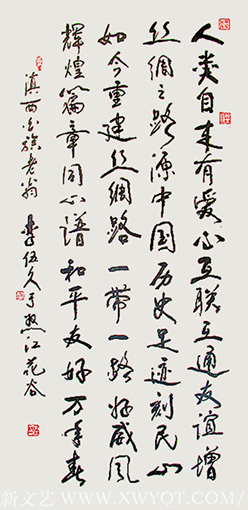 人类自来有爱心互联互通友谊增
丝绸之路源中国历史足迹刻民心
如今重建丝绸路一带一路好威风
辉煌篇章同心谱和平友好万年春
滇西老翁李伍久于怒江花谷
新文艺 WWW.XWYQT.COM/